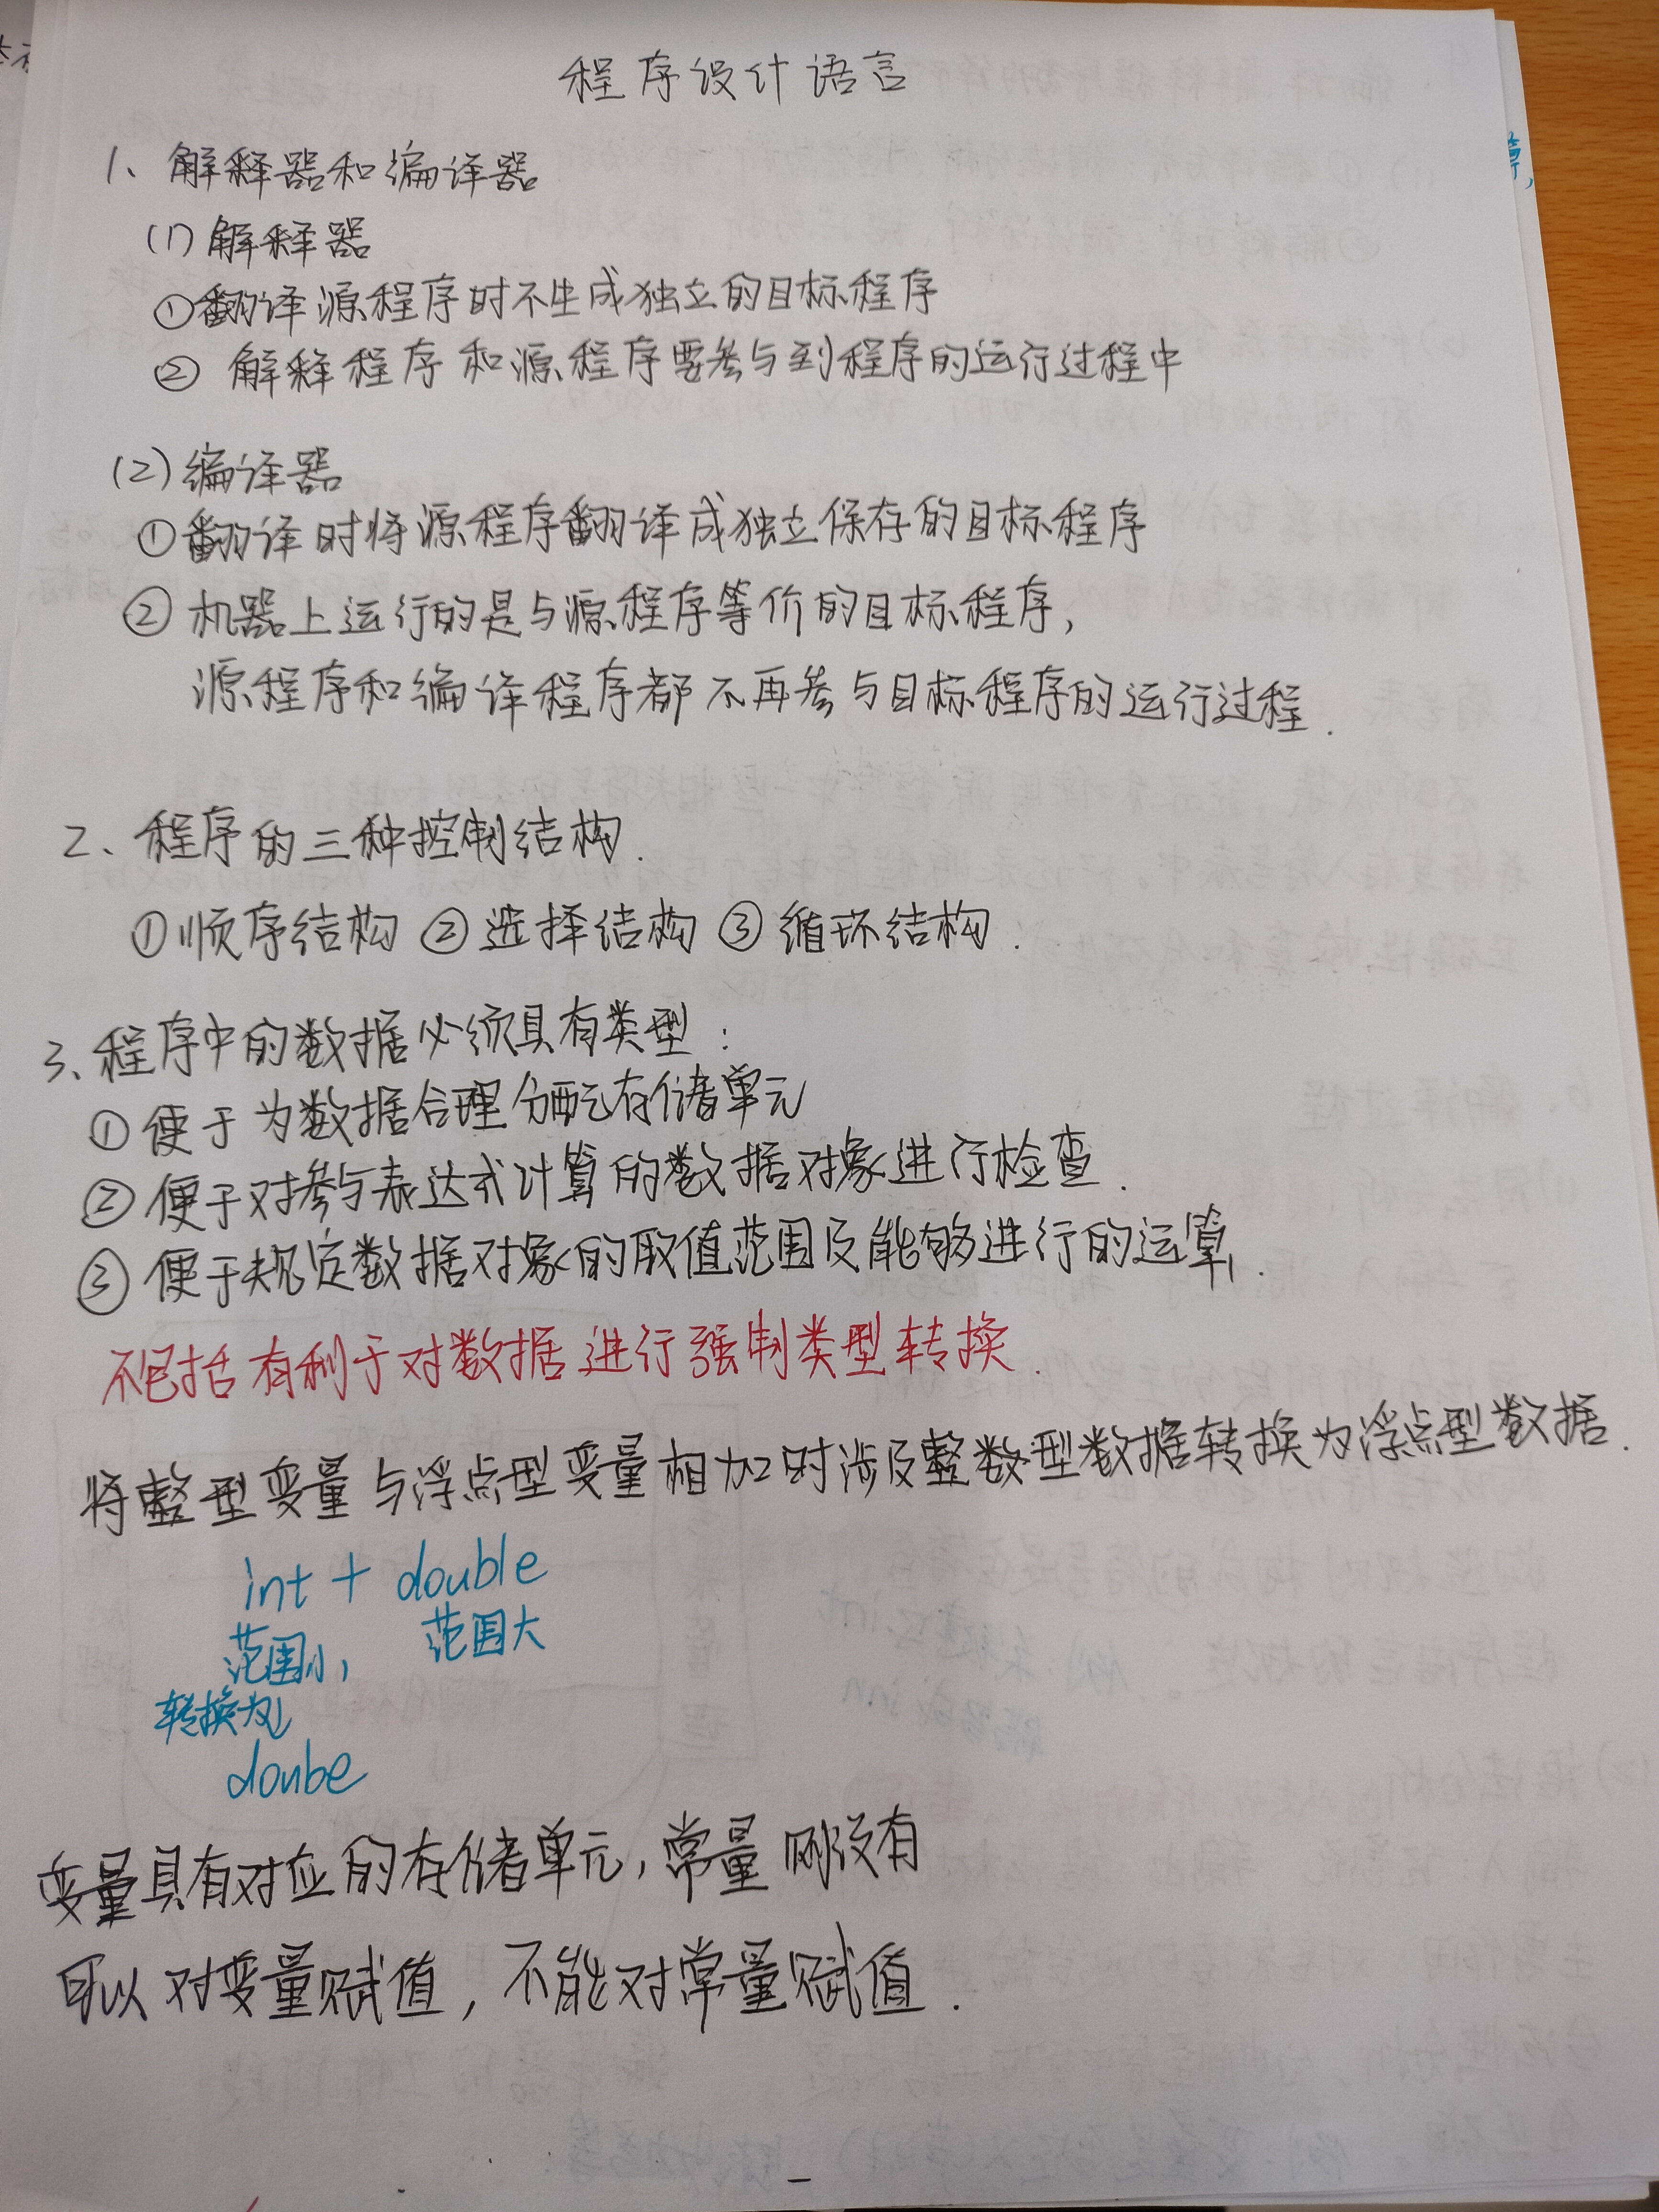 程序设计语言
1、解释器和编译器
(1) 解释器
①翻译源程序时不生成独立的目标程序
② 解释程序和源程序要参与到程序的运行过程中
(2) 编译器
①翻译时将源程序翻译成独立保存的目标程序
② 机器上运行的是与源程序等价的目标程序,
源程序和编译程序都不再参与目标程序的运行过程.
2、程序的三种控制结构.
①顺序结构 ②选择结构 ③循环结构.
3、程序中的数据必须具有类型:
①便于为数据合理分配存储单元
②便于对参与表达式计算的数据对象进行检查.
③便于规定数据对象的取值范围及能够进行的运算.
不包括有利于对数据进行强制类型转换.
将整型变量与浮点型变量相加时涉及整数型数据转换为浮点型数据.
int + double
范围小, 范围大
转换为
doube
变量具有对应的存储单元,常量则没有
可以对变量赋值,不能对常量赋值.